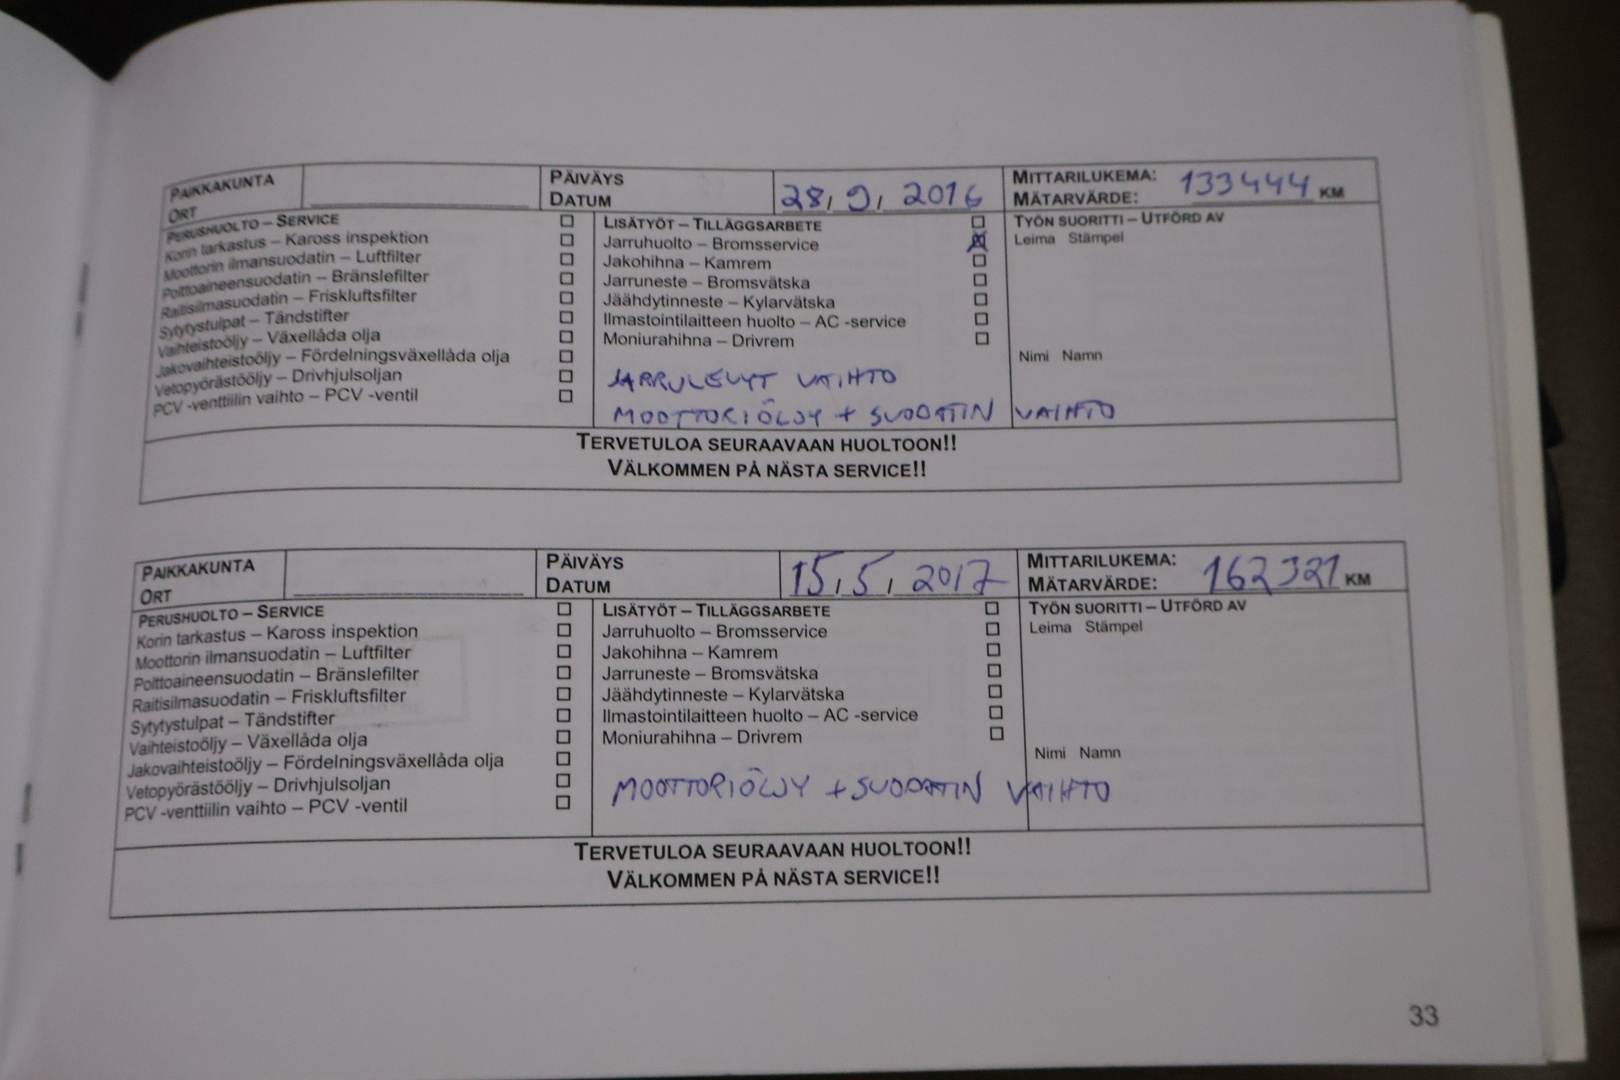 PAIKKAKUNTA
ORT
PÄIVÄYS
DATUM
28, 9, 2016
MITTARILUKEMA:
MÄTARVÄRDE:
133444 KM
PERUSHUOLTO – SERVICE
Korin tarkastus – Kaross inspektion
Moottorin ilmansuodatin – Luftfilter
Polttoaineensuodatin – Bränslefilter
Raitisilmasuodatin – Friskluftsfilter
Sytytystulpat – Tändstifter
Vaihteistoöljy – Växellåda olja
Jakovaihteistoöljy – Fördelningsväxellåda olja
Vetopyörästööljy – Drivhjulsoljan
PCV -venttiilin vaihto – PCV -ventil
LISÄTYÖT – TILLÄGGSARBETE
Jarruhuolto – Bromsservice
Jakohihna – Kamrem
Jarruneste – Bromsvätska
Jäähdytinneste – Kylarvätska
Ilmastointilaitteen huolto – AC -service
Moniurahihna – Drivrem
JARRULEVYT VAIHTO
MOOTTORIÖLJY + SUODATIN VAIHTO
TYÖN SUORITTI – UTFÖRD AV
Leima Stämpel
Nimi Namn
TERVETULOA SEURAAVAAN HUOLTOON!!
VÄLKOMMEN PÅ NÄSTA SERVICE!!
PAIKKAKUNTA
ORT
PÄIVÄYS
DATUM
15, 5, 2017
MITTARILUKEMA:
MÄTARVÄRDE:
162321 KM
PERUSHUOLTO – SERVICE
Korin tarkastus – Kaross inspektion
Moottorin ilmansuodatin – Luftfilter
Polttoaineensuodatin – Bränslefilter
Raitisilmasuodatin – Friskluftsfilter
Sytytystulpat – Tändstifter
Vaihteistoöljy – Växellåda olja
Jakovaihteistoöljy – Fördelningsväxellåda olja
Vetopyörästööljy – Drivhjulsoljan
PCV -venttiilin vaihto – PCV -ventil
LISÄTYÖT – TILLÄGGSARBETE
Jarruhuolto – Bromsservice
Jakohihna – Kamrem
Jarruneste – Bromsvätska
Jäähdytinneste – Kylarvätska
Ilmastointilaitteen huolto – AC -service
Moniurahihna – Drivrem
MOOTTORIÖLJY + SUODATIN VAIHTO
TYÖN SUORITTI – UTFÖRD AV
Leima Stämpel
Nimi Namn
TERVETULOA SEURAAVAAN HUOLTOON!!
VÄLKOMMEN PÅ NÄSTA SERVICE!!
33